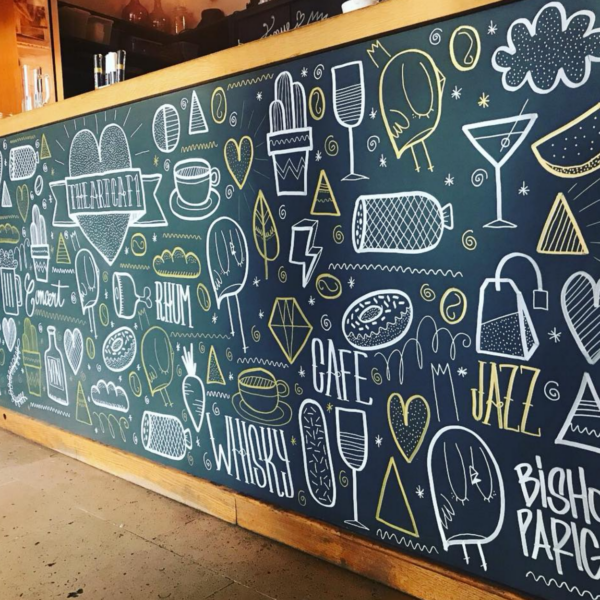 THEARTCAFÉ
Concert
RHUM
CAFE
JAZZ
WHISKY
BISHO
PARIG